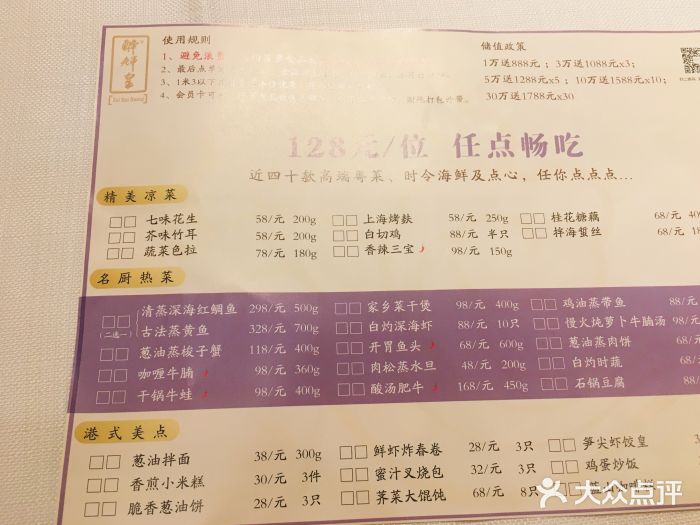 使用规则
1、避免浪
2、最后点单
3、1米3以下
4、会员卡可 谢绝打包外带。
储值政策
1万送888元；3万送1088元x3；
5万送1288元x5；10万送1588元x10；
30万送1788元x30
128元/位 任点畅吃
近四十款高端粤菜、时令海鲜及点心，任你点点点...
精美凉菜
七味花生 58/元 200g 上海烤麸 58/元 250g 桂花糖藕 68/元
芥味竹耳 58/元 200g 白切鸡 88/元 半只 拌海蜇丝 68/元
蔬菜色拉 78/元 180g 香辣三宝 98/元 150g
名厨热菜
清蒸深海红鲷鱼 298/元 500g 家乡菜干煲 98/元 400g 鸡油蒸带鱼 88/元
(二选一) 古法蒸黄鱼 328/元 700g 白灼深海虾 88/元 10只 慢火炖萝卜牛腩汤 98/元
葱油蒸梭子蟹 118/元 400g 开胃鱼头 68/元 600g 葱油蒸肉饼 68/元
咖喱牛腩 98/元 360g 肉松蒸水旦 48/元 200g 白灼时蔬 68/元
干锅牛蛙 98/元 400g 酸汤肥牛 168/元 450g 石锅豆腐 88/元
港式美点
葱油拌面 38/元 300g 鲜虾炸春卷 28/元 3只 笋尖虾饺皇
香煎小米糕 30/元 3件 蜜汁叉烧包 32/元 3只 鸡蛋炒饭
脆香葱油饼 28/元 3只 荠菜大馄饨 68/元 8只
大众点评